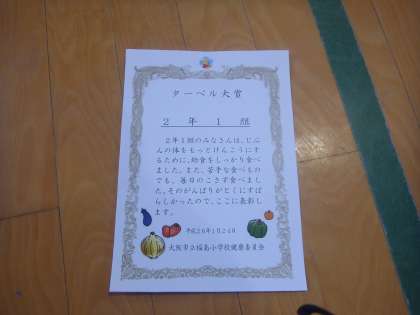 ターベル大賞
２年１組
２年１組のみなさんは、じぶ
んの体をもっとけんこうにす
るために、給食をしっかり食べ
ました。また、苦手な食べもの
でも、毎日のこさず食べまし
た。そのがんばりがとくにすば
らしかったので、ここに表彰し
ます。
平成26年1月24日
大阪市立福島小学校健康委員会